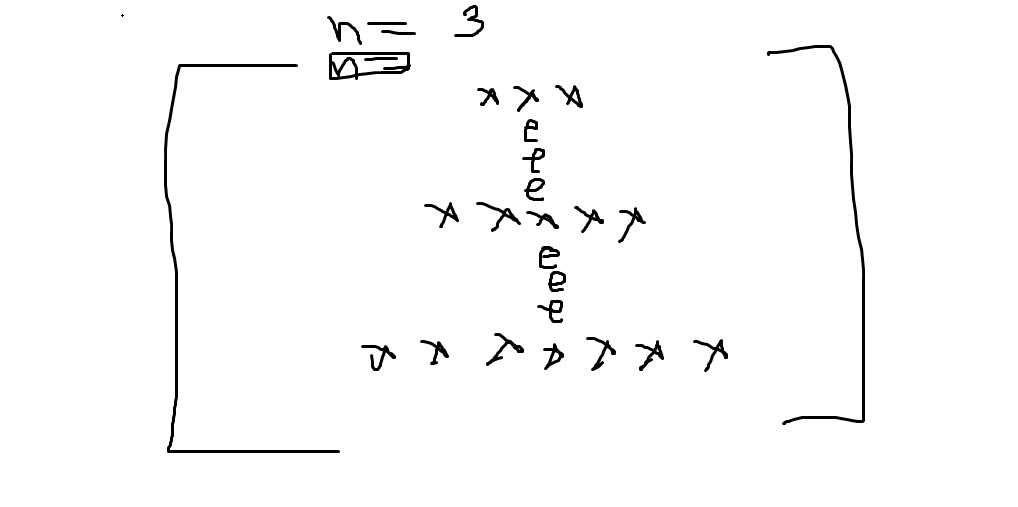 n = 3
n =
x x x
e
e
e
x x x x x
e
e
e
x x x x x x x